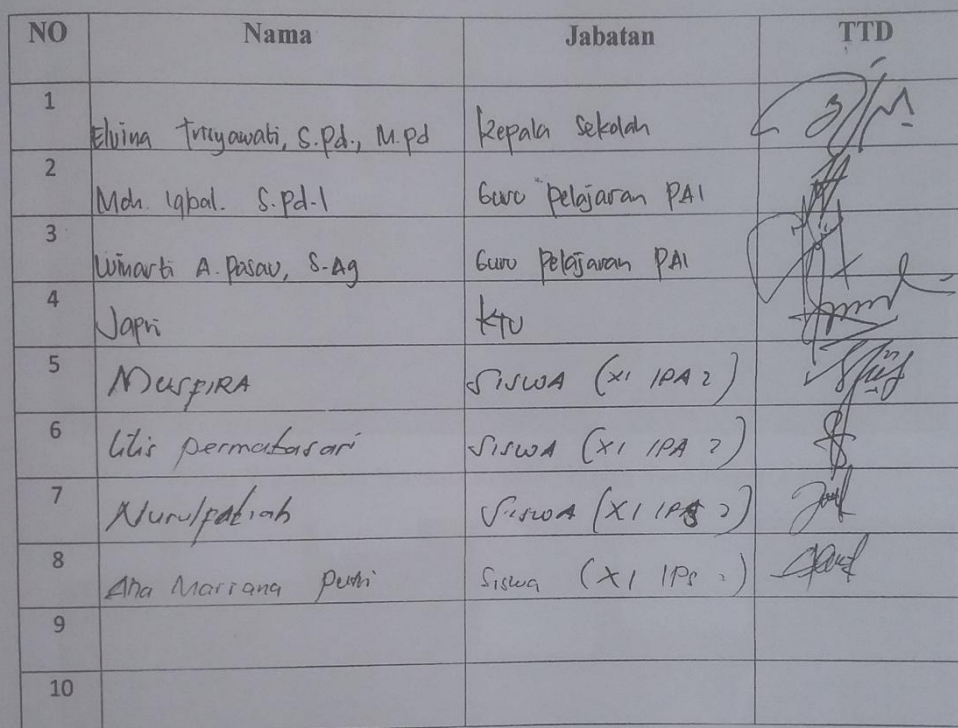 NO Nama Jabatan TTD
1 Elvina Trisyawati, S.Pd., M.pd Kepala Sekolah
2 Moh. Iqbal. S.Pd.I Guru Pelajaran PAI
3 Winarti A. Pasau, S.Ag Guru Pelajaran PAI
4 Japri KTU
5 MUSFIRA SISWA (XI IPA 2)
6 Lilis permatasari SISWA (XI IPA 2)
7 Nurulfatiah SISWA (XI 2)
8 Ana Marsana Putri Siswa (XI IPS )
9
10